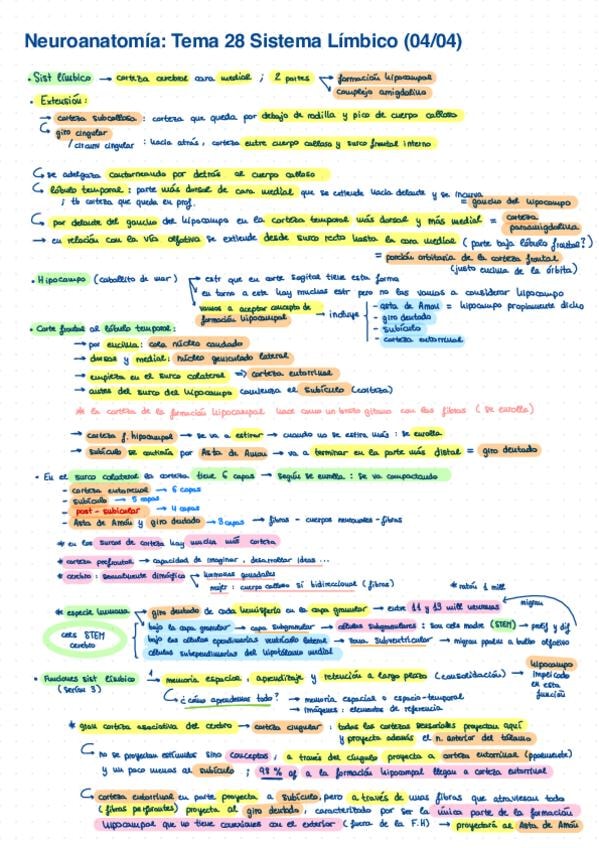 Neuroanatomía: Tema 28 Sistema Límbico (04/04)
• Sist límbico → corteza cerebral cara medial ; 2 partes → formación hipocampal
→ complejo amigdalino
• Extensión:
→ corteza subcallosa : corteza que queda por debajo de rodilla y pico de cuerpo calloso
↳ giro cingular
/ circunv cingular : hacia atrás, corteza entre cuerpo calloso y surco frontal interno
↳ se adelgaza contorneando por detrás al cuerpo calloso
↳ lóbulo temporal : parte más dorsal de cara medial que se extiende hacia delante y se incurva
; tb corteza que queda en prof. = gancho del hipocampo
↳ por delante del gancho del hipocampo en la corteza temporal más dorsal y más medial = corteza
paraamigdalina
→ en relación con la vía olfativa se extiende desde surco recto hasta la cara medial (parte baja lóbulo frontal?)
= porción orbitaria de la corteza frontal
(justo encima de la órbita)
• Hipocampo (caballito de mar) → estr que en corte sagital tiene esta forma
→ en torno a este hay muchas estr pero no las vamos a considerar hipocampo
→ vamos a aceptar concepto de
formación hipocampal → incluye
- asta de Amon = hipocampo propiamente dicho
- giro dentado
- subículo
- corteza entorrinal
• Corte frontal al lóbulo temporal:
→ por encima: cola núcleo caudado
→ dorsal y medial: núcleo geniculado lateral
→ empieza en el surco colateral => corteza entorrinal
→ antes del surco del hipocampo comienza el subículo (corteza)
* la corteza de la formación hipocampal hace como un brazo gitano con las fibras (se enrolla)
→ corteza f. hipocampal → se va a estirar → cuando no se estira más : se enrolla
→ subículo se continúa por Asta de Amon → va a terminar en la parte más distal = giro dentado
• En el surco colateral la corteza tiene 6 capas → según se enrolla : se va compactando
- corteza entorrinal → 6 capas
- subículo → 5 capas
post - subicular → 4 capas
- Asta de Amón y giro dentado → 3 capas → fibras - cuerpos neuronales - fibras
* en los surcos de corteza hay mucha más corteza
* corteza prefrontal → capacidad de imaginar, desarrollar ideas...
* cerebro : sexualmente dimórfico → hormonas gonadales
→ mujer : cuerpo calloso sí bidireccional (fibras)
* ratón 1 mill
* especie humana → giro dentado de cada hemisferio en la capa granular → entre 11 y 19 mill neuronas
migran
cels STEM
cerebro
bajo la capa granular → capa subgranular → células subgranulares : son cels madre (STEM) → prolif y dif
bajo las células ependimarias ventrículo lateral → zona subventricular → migran ppalm a bulbo olfativo
células subependimarias del hipotálamo medial
• Funciones sist límbico
(serían 3)
→ 1 memoria espacial, aprendizaje y retención a largo plazo (consolidación) → hipocampo
implicado
en esta
función
↳ ¿cómo aprendemos todo? → memoria espacial o espacio-temporal
→ imágenes : elementos de referencia
* gran corteza asociativa del cerebro → corteza cingular : todas las cortezas sensoriales proyectan aquí
y proyecta además el n. anterior del tálamo
↳ no se proyectan estímulos sino conceptos, a través del cíngulo proyecta a corteza entorrinal (ppalmente)
y un poco menos al subículo ; 98 % af a la formación hipocampal llegan a corteza entorrinal
↳ corteza entorrinal en parte proyecta a subículo, pero a través de unas fibras que atraviesan todo
(fibras perforantes) proyecta al giro dentado, caracterizado por ser la única parte de la formación
hipocampal que no tiene conexiones con el exterior (fuera de la F.H) → proyectará al Asta de Amon